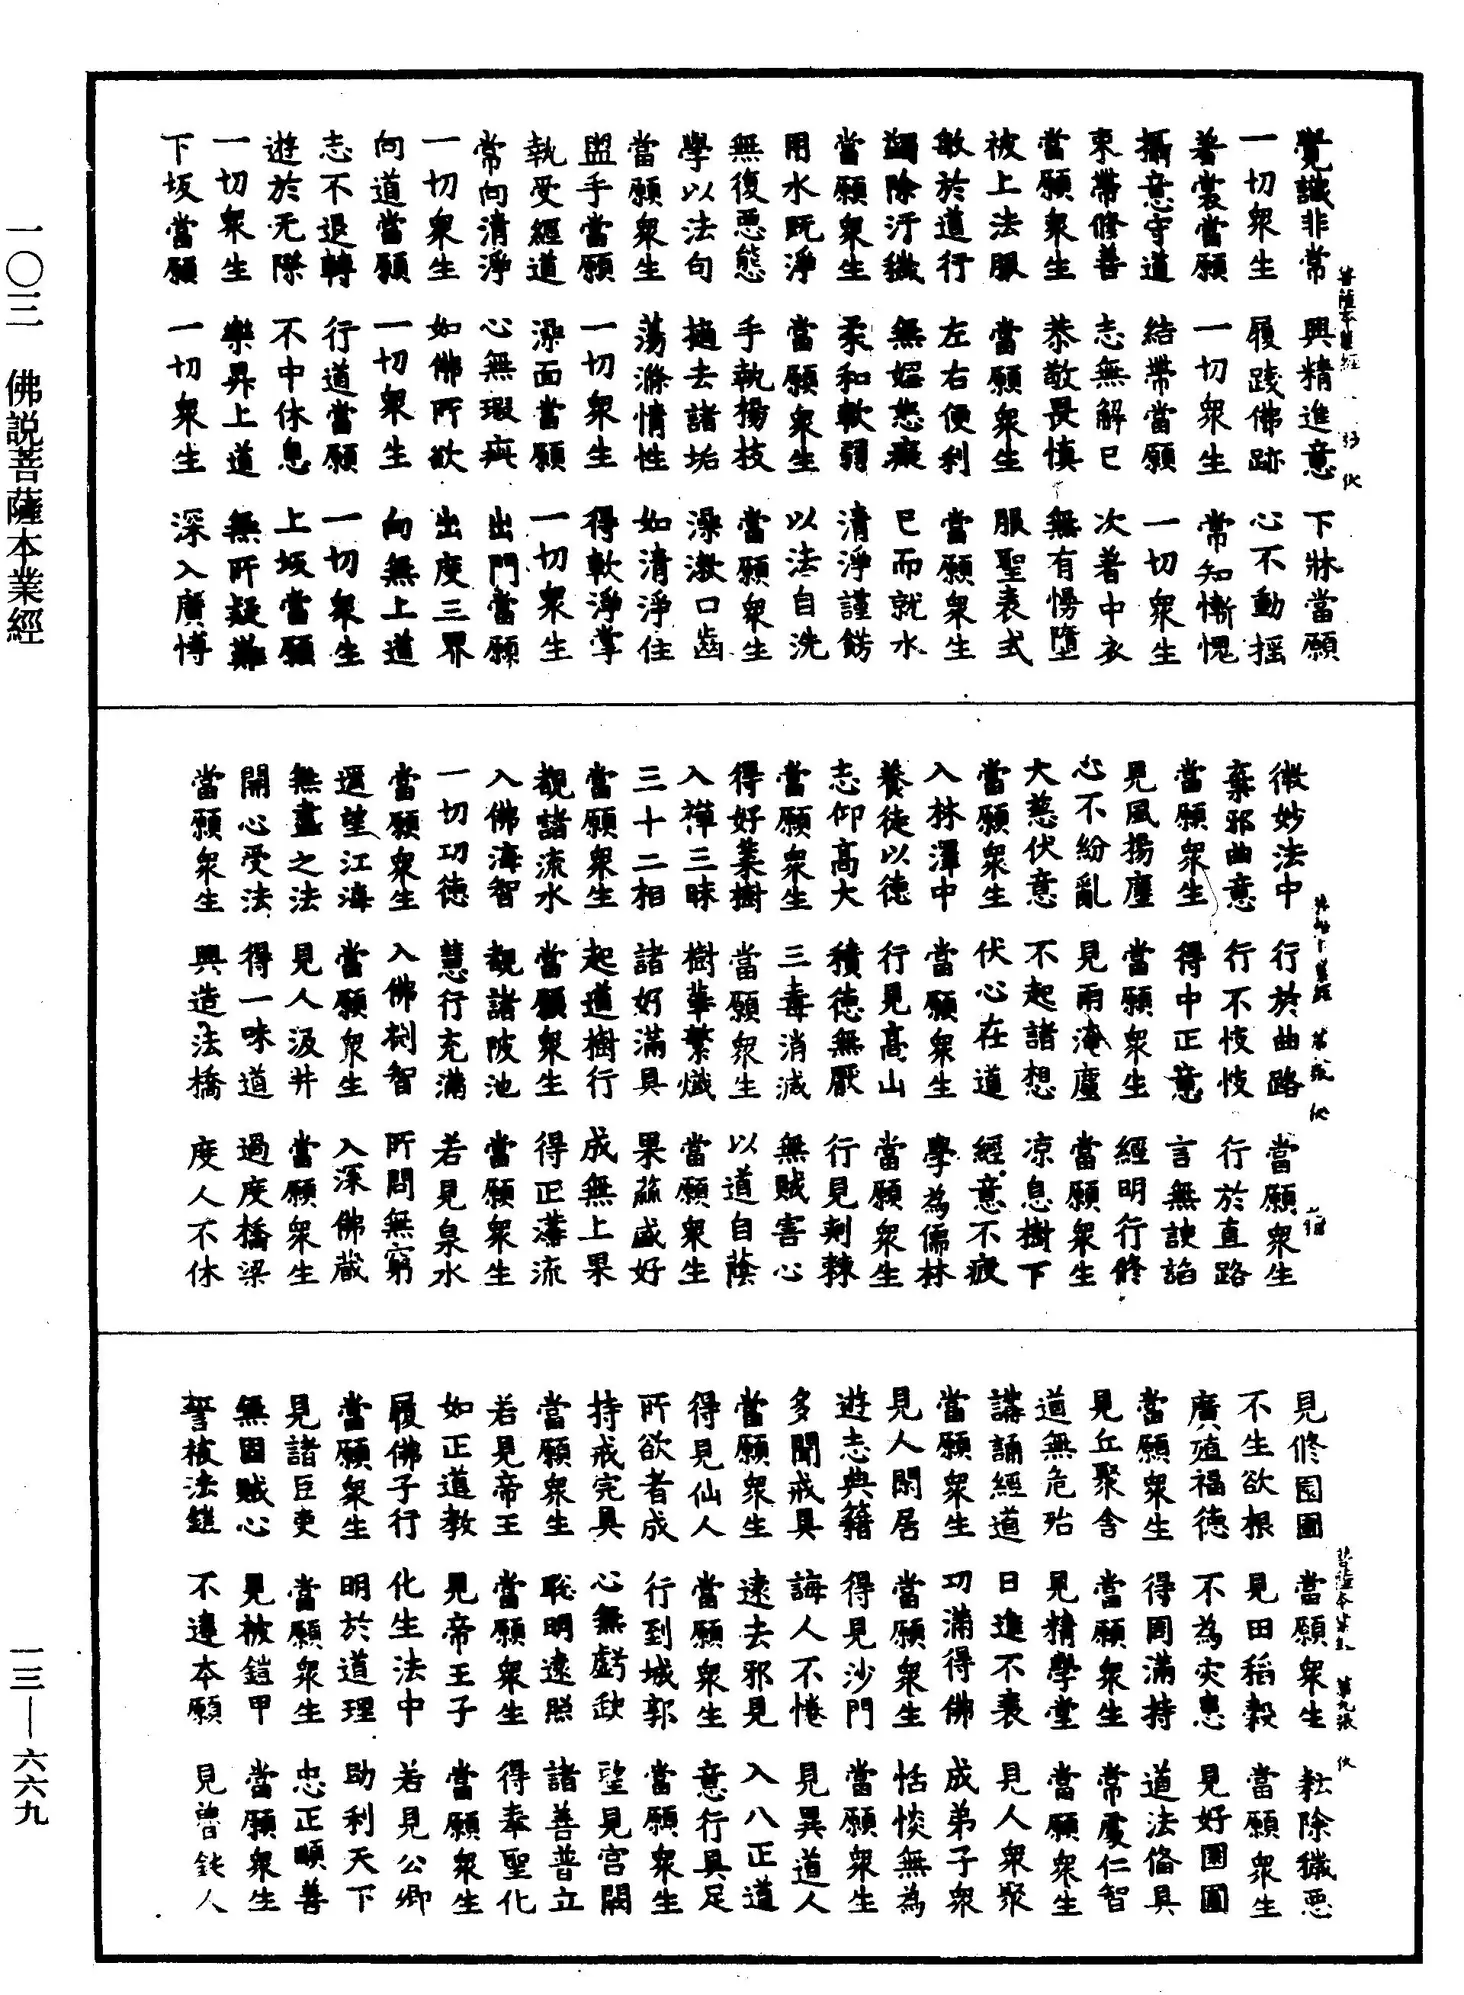 覺識非常　興精進意　下牀當願
一切衆生　履踐佛跡　心不動摇
著裳當願　一切衆生　常知慚愧
攝意守道　結帶當願　一切衆生
束帶修善　志無解已　次著中衣
當願衆生　恭敬畏慎　無有慢墮
被上法服　當願衆生　服聖表式
敏於道行　左右便利　當願衆生
蠲除汙穢　無婬怒癡　已而就水
當願衆生　柔和軟弱　清淨謹飭
用水既淨　當願衆生　以法自洗
無復惡態　手執楊枝　當願衆生
學以法句　擿去諸垢　澡漱口齒
當願衆生　蕩滌情性　如清淨住
盥手當願　一切衆生　得軟淨掌
執受經道　澡面當願　一切衆生
常向清淨　心無瑕疵　出門當願
一切衆生　如佛所欲　出度三界
向道當願　一切衆生　向無上道
志不退轉　行道當願　一切衆生
遊於无際　不中休息　上坂當願
一切衆生　樂昇上道　無所疑難
下坂當願　一切衆生　深入廣博
微妙法中　行於曲路　當願衆生
棄邪曲意　行不忮忮　行於直路
當願衆生　得中正意　言無諛諂
見風揚塵　當願衆生　經明行修
心不紛亂　見雨淹塵　當願衆生
大慈伏意　不起諸想　凉息樹下
當願衆生　伏心在道　經意不疲
入林澤中　當願衆生　學為儒林
養徒以德　行見高山　當願衆生
志仰高大　積德無厭　行見刺棘
當願衆生　三毒消滅　無賊害心
得好葉樹　當願衆生　以道自蔭
入禪三昧　樹華繁熾　當願衆生
三十二相　諸好滿具　果蓏盛好
當願衆生　起道樹行　成無上果
觀諸流水　當願衆生　得正溝流
入佛海智　觀諸陂池　當願衆生
一切功德　慧行充滿　若見泉水
當願衆生　入佛淵智　所問無窮
遥望江海　當願衆生　入深佛藏
無盡之法　見人汲井　當願衆生
開心受法　得一味道　過度橋梁
當願衆生　興造法橋　度人不休
見修園圃　當願衆生　耘除穢惡
不生欲根　見田稻穀　當願衆生
廣殖福德　不為灾患　見好園圃
當願衆生　得周滿持　道法俻具
見丘聚舍　當願衆生　常處仁智
道無危殆　見精學堂　當願衆生
講誦經道　日進不衰　見人衆聚
當願衆生　功滿得佛　成弟子衆
見人閑居　當願衆生　恬惔無為
遊志典籍　得見沙門　當願衆生
多聞戒具　誨人不惓　見異道人
當願衆生　遠去邪見　入八正道
得見仙人　當願衆生　意行具足
所欲者成　行到城郭　當願衆生
持戒完具　心無虧缺　望見宫闕
當願衆生　聡明遠照　諸善普立
若見帝王　當願衆生　得奉聖化
如正道教　見帝王子　當願衆生
履佛子行　化生法中　若見公卿
當願衆生　明於道理　助利天下
見諸臣吏　當願衆生　忠正順善
無固賊心　見被鎧甲　當願衆生
誓被法鎧　不違本願　見魯鈍人
菩薩本業經
菩薩本業經　第九張
一〇三　佛説菩薩本業經
一三—六六九